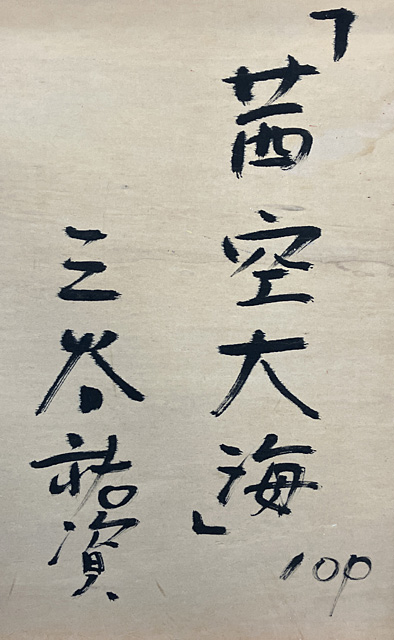 「茜空大海」
100
三谷祐資